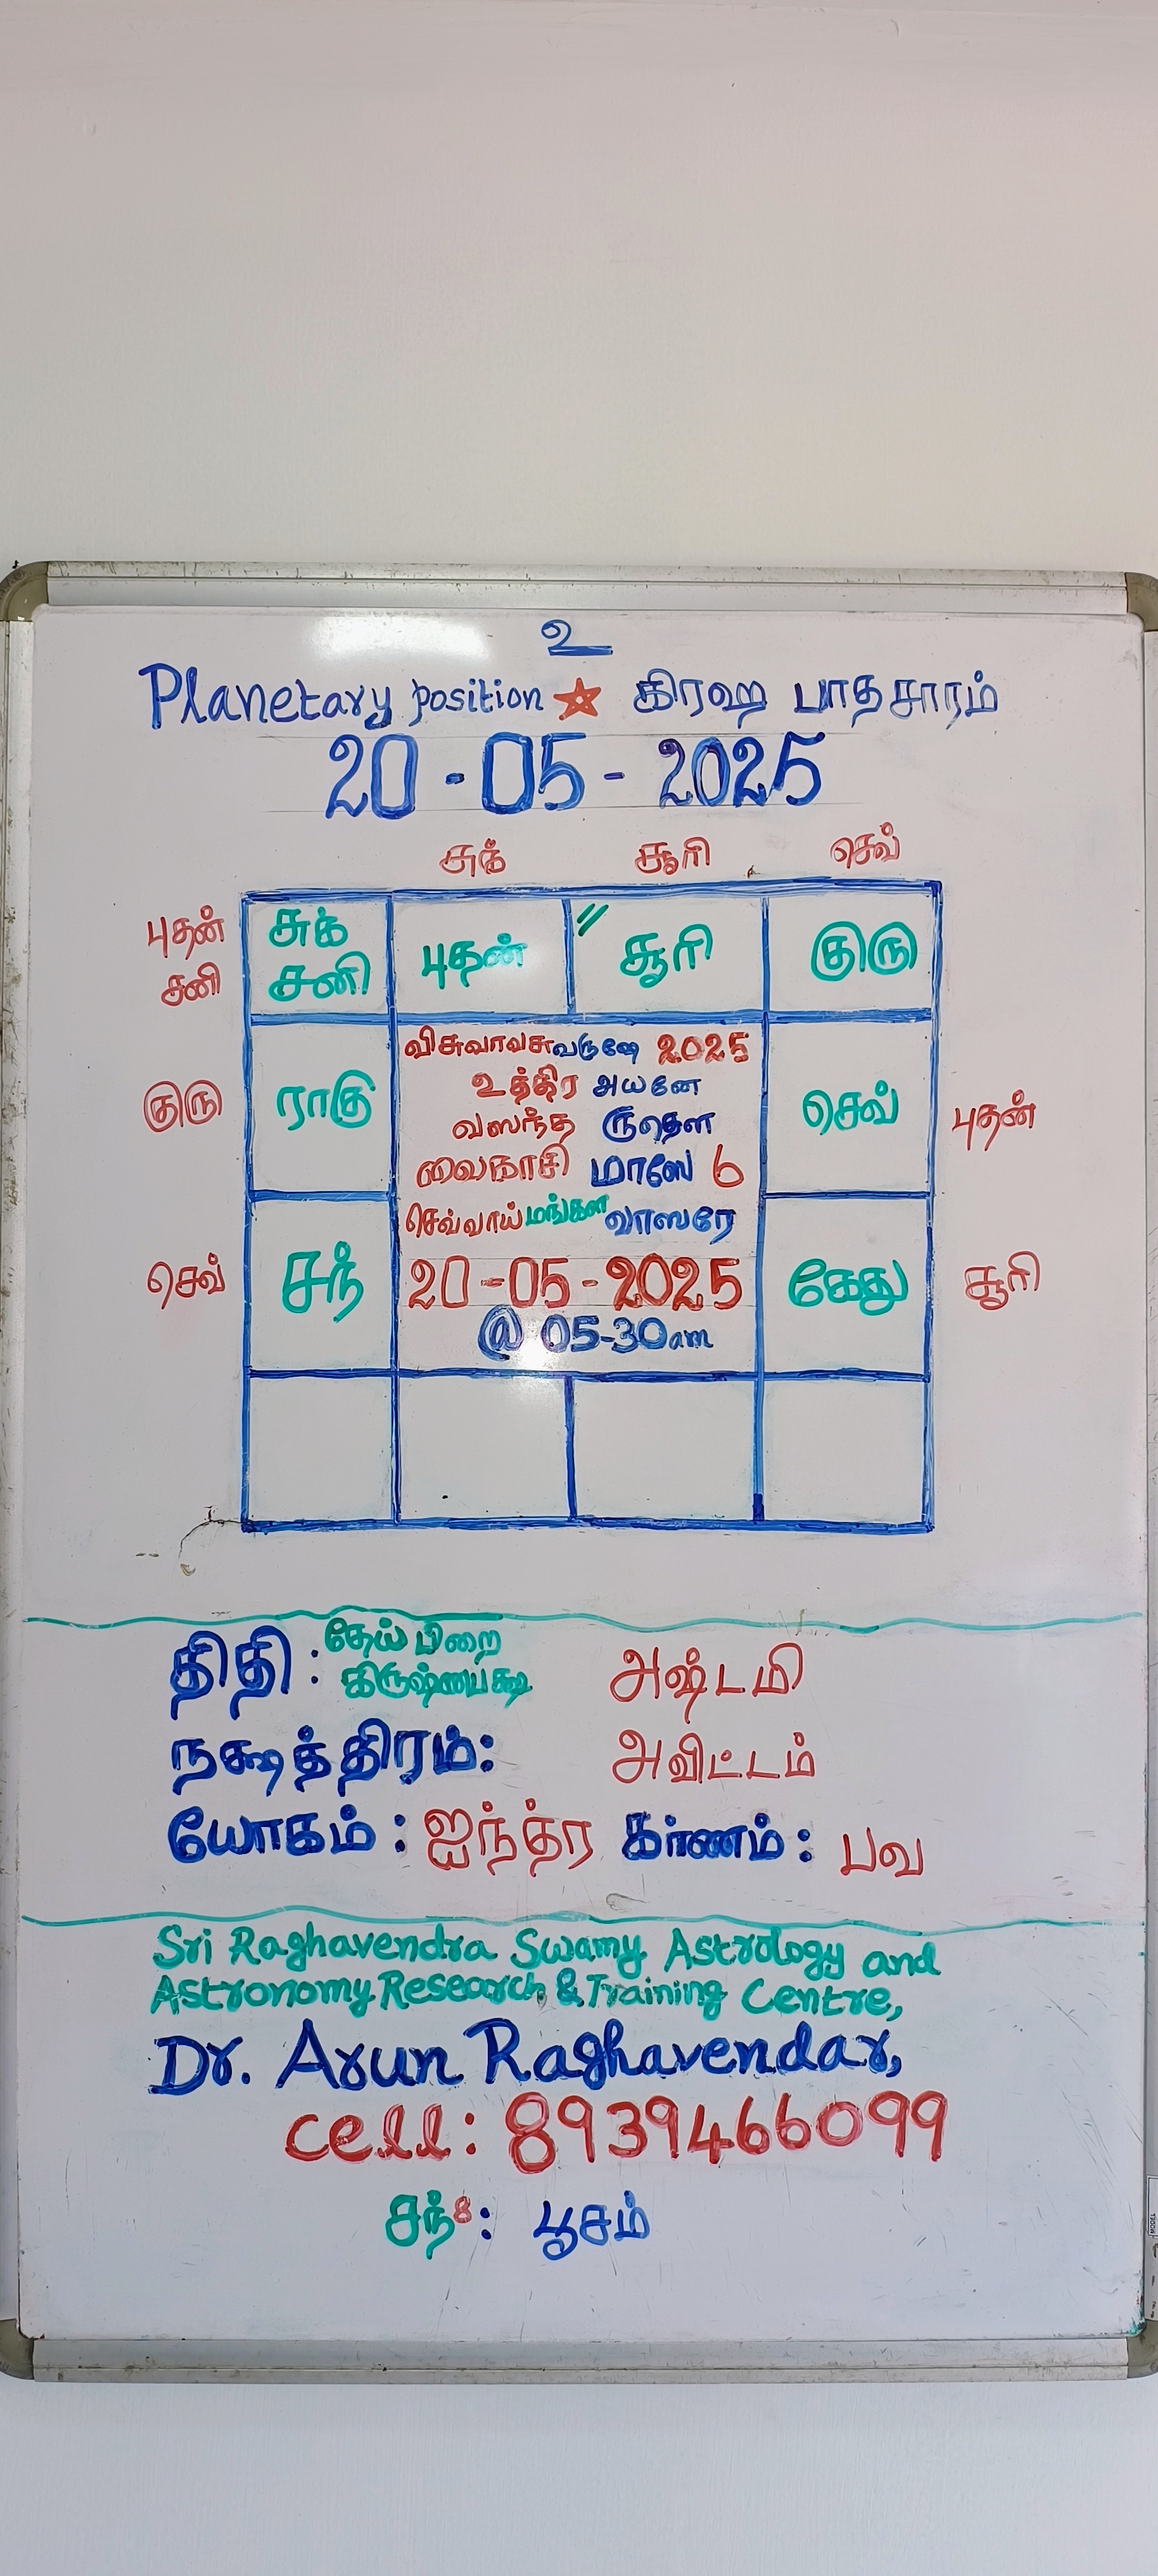 உ
Planetary position ☆ கிரஹ பாதசாரம்
20-05-2025
சுக் சூரி செவ்
புதன் சுக் புதன் // சூரி குரு
சனி சனி
விசுவாவசு வருஷே 2025
உத்திர அயனே
குரு ராகு வஸந்த ருதௌ செவ் புதன்
வைகாசி மாஸே 6
செவ்வாய் மங்கள வாஸரே
செவ் சந் 20-05-2025 கேது சூரி
@ 05-30am
திதி : தேய் பிறை அஷ்டமி
கிருஷ்ணபக்ஷ
நக்ஷத்திரம்: அவிட்டம்
யோகம் : ஐந்த்ர கர்ணம் : பவ
Sri Raghavendra Swamy Astrology and
Astronomy Research & Training Centre,
Dr. Arun Raghavendar,
cell: 8939466099
சந்8: பூசம்